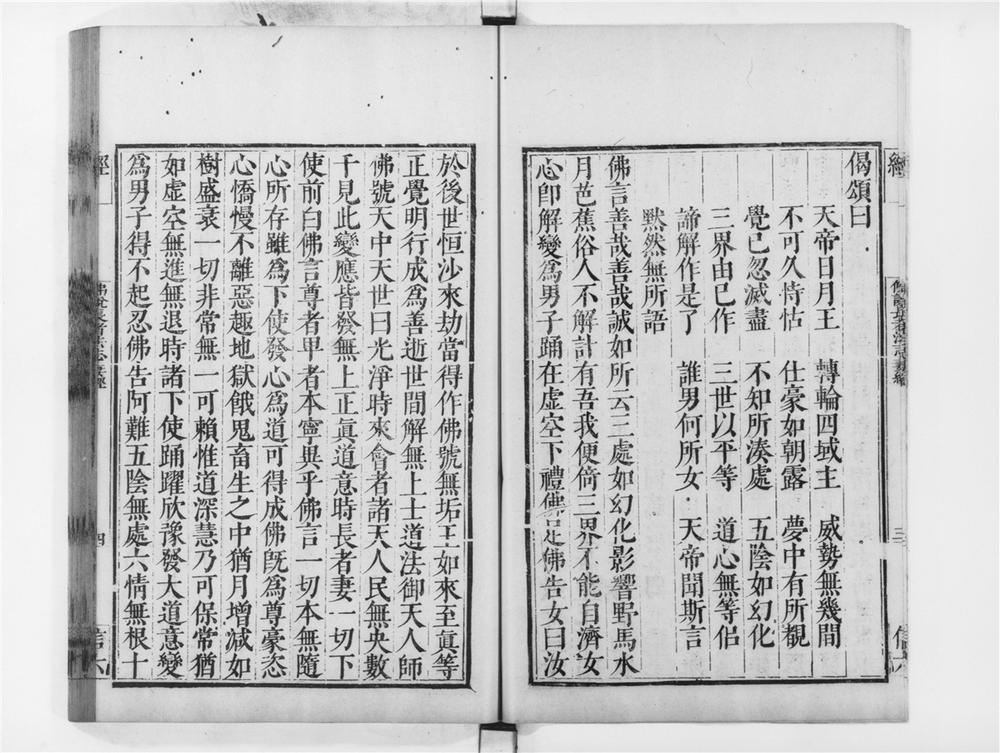 偈頌曰
天帝日月王　轉輪四域主　威勢無幾間
不可久恃怙　仕豪如朝露　夢中有所覩
覺已忽滅盡　不知所湊處　五陰如幻化
三界由已作　三世以平等　道心無等侶
諦解作是了　誰男何所女　天帝聞斯言
黙然無所語
佛言善哉善哉誠如所云三處如幻化影響野馬水
月芭蕉俗人不解計有吾我便倚三界不能自濟女
心卽解變爲男子踊在虛空下禮佛足佛告女曰汝
經
三
信六
於後世恒沙來劫當得作佛號無垢王如來至眞等
正覺明行成爲善逝世間解無上士道法御天人師
佛號天中天世曰光淨時來會者諸天人民無央數
千見此變應皆發無上正眞道意時長者妻一切下
使前白佛言尊者甲者本寧異乎佛言一切本無隨
心所存雖爲下使發心爲道可得成佛旣爲尊豪恣
心憍慢不離惡趣地獄餓鬼畜生之中猶月增減如
樹盛衰一切非常無一可賴惟道深慧乃可保常猶
如虛空無進無退時諸下使踊躍欣豫發大道意變
爲男子得不起忍佛告阿難五陰無處六情無根十
經
佛說長者法志妻經
四
信六